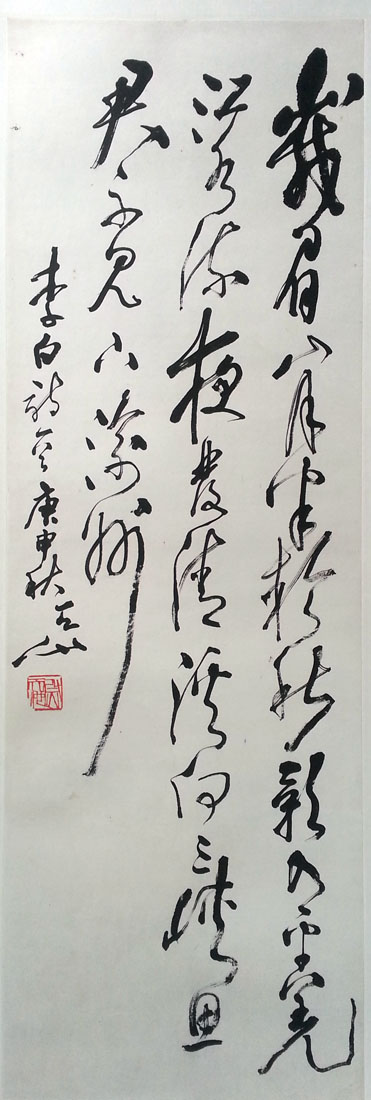 峩眉山月半輪秋影入平羌
江水流夜發清溪向三峽思
君不見下渝州
李白詩 庚申秋